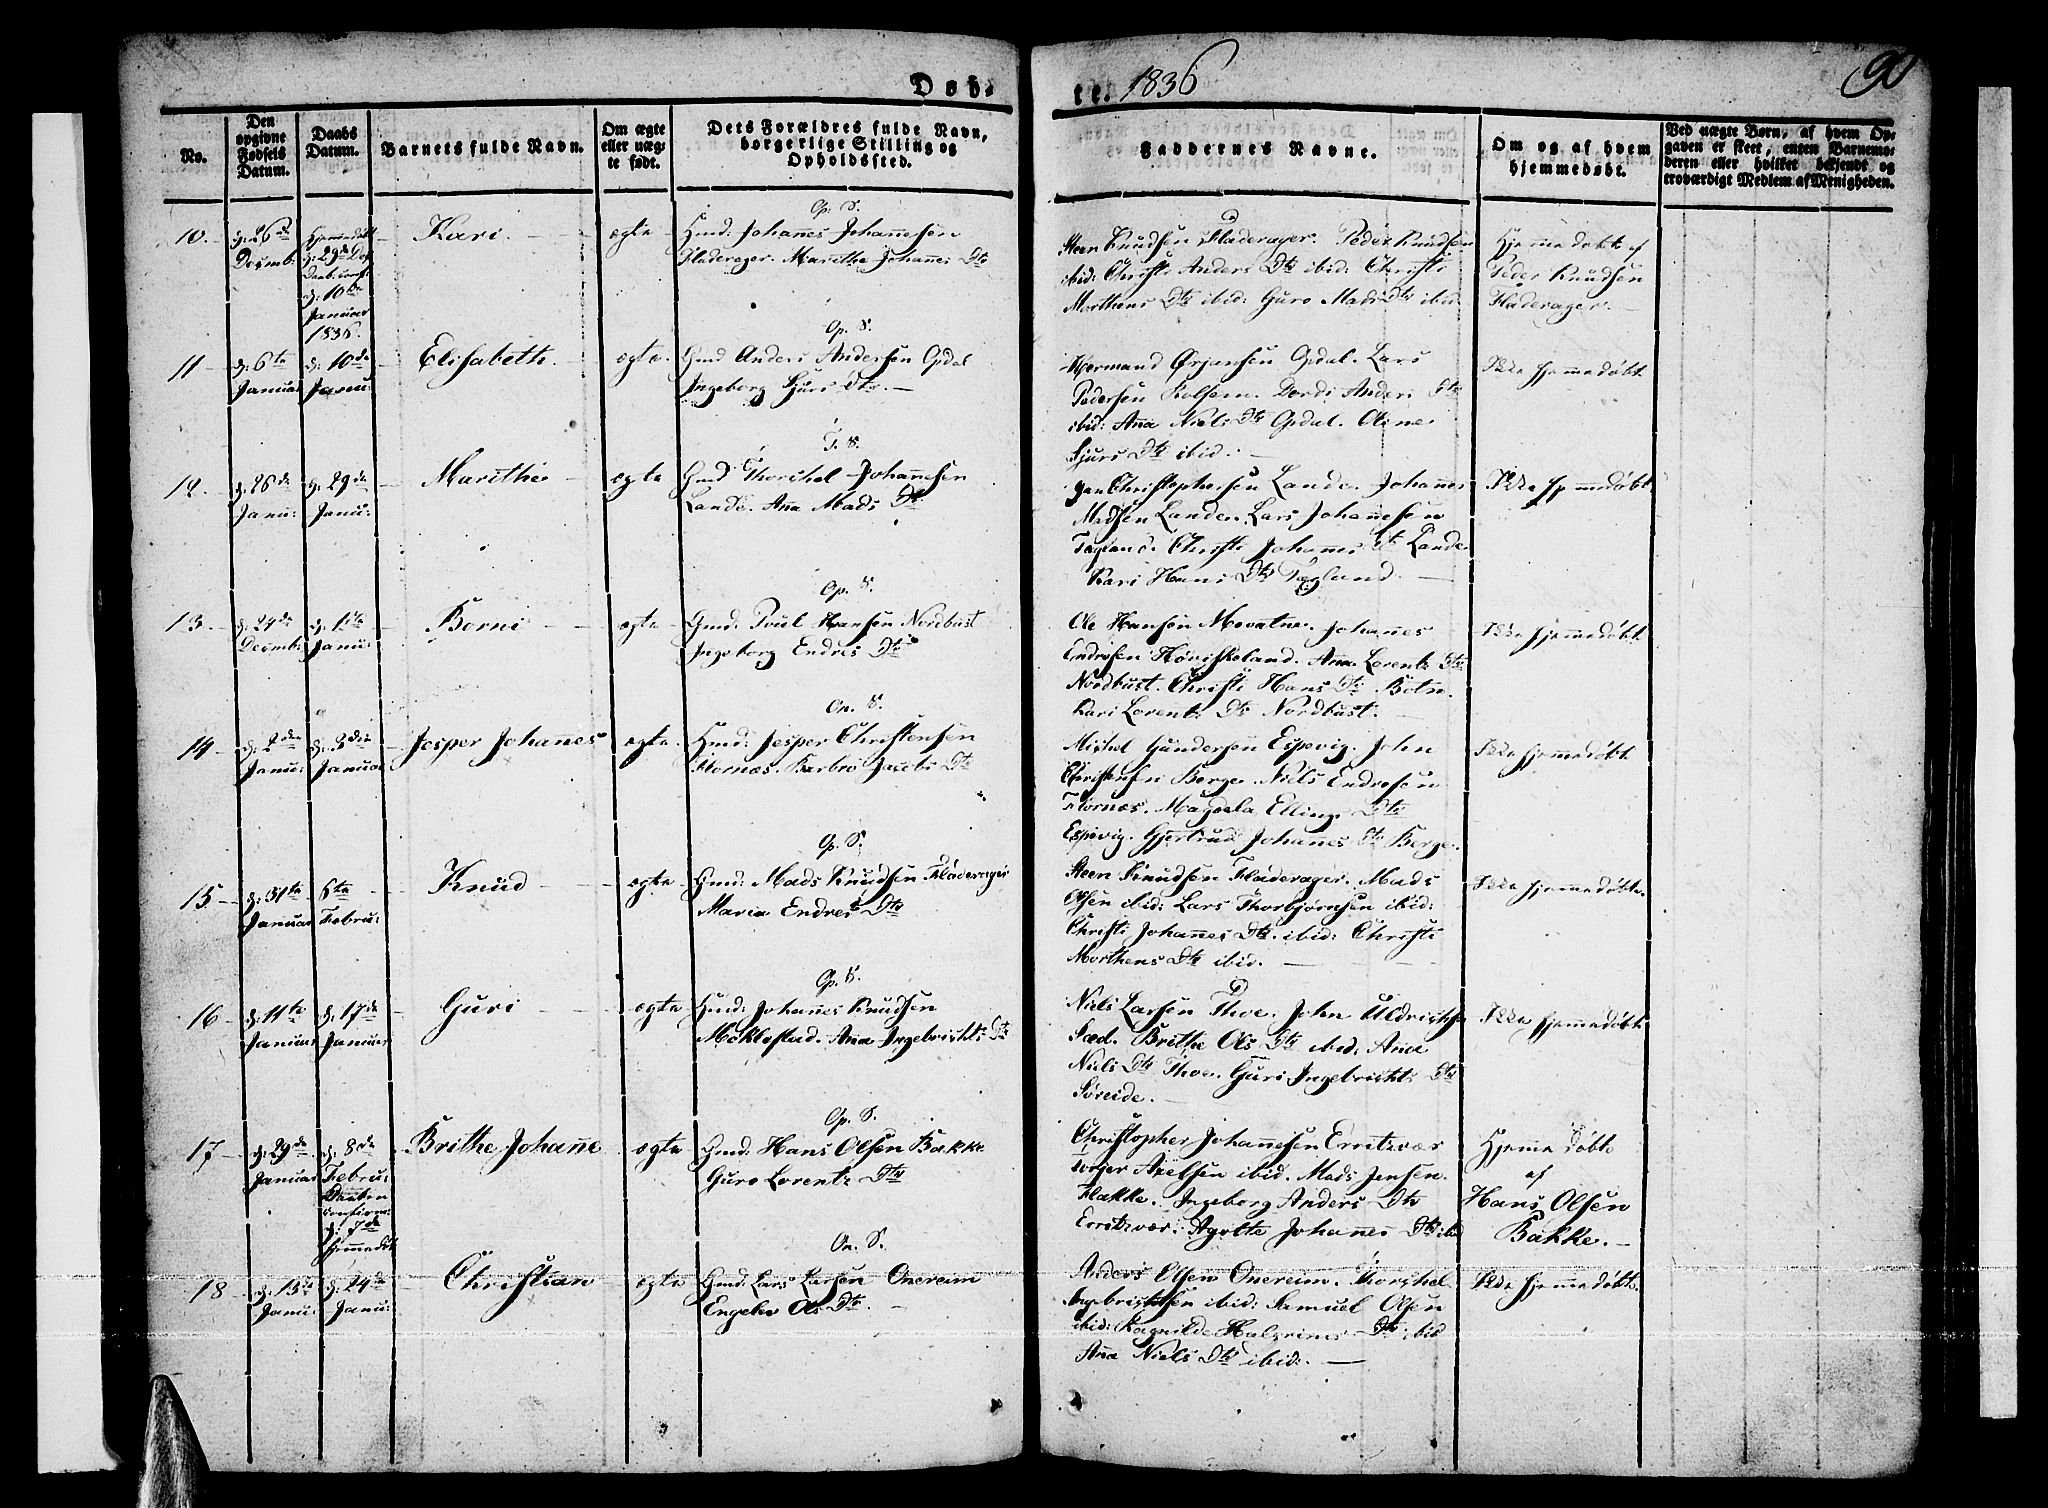 Døb-
te. 1836
90
No.
Den
opgivne
Fødsels
Datum.
Daabs
Datum.
Barnets fulde Navn.
Om ægte
eller uæg-
te født.
Dets Forældres fulde Navn,
borgerlige Stilling og
Opholdssted.
Faddernes Navne.
Om og af hvem
hjemmedøbt.
Ved uægte Børn, af hvem Op-
gaven er skeet, enten Barnemo-
deren eller hvilket bekjendt og
troværdigt Medlem af Menigheden.
10.
d: 26de
Decemb:
Hjemmedøbt
d: 29de Dec
Daab. conf:
d: 10de
Januar
1836.
Kari.
ægte
Op. S.
Gmd: Johanes Johannesen
Fladerager. Marithe Johannes Dtr
Steen Knudsen Fladerager. Peder Knudsen
ibid: Christi Anders Dtr ibid: Christi
Morthens Dtr ibid: Guro Mads Dtr ibid
Hjemmedøbt af
Peder Knudsen
Fladerager.
11
d: 6te
Januar
d: 10de
Janu:
Elisabeth.
ægte.
Op. S.
Gmd Anders Andersen Opdal
Ingeborg Sjurs Dtr.
Hermand Ørjansen Opdal. Lars
Pedersen Kolsem. Dordi Anders Dtr
ibid: Ana Niels Dtr Opdal. Oline
Sjurs Dtr ibid.
Ikke hjemmedøbt
12.
d: 26de
Janu:
d: 29de
Janu:
Marithe
ægte
T. S.
Gmd Thorchel Johannesen
Lande. Ana Mads Dtr
Christophersen Lande. Johannes
Madsen Lande. Lars Johannesen
Christi Johannes Dtr Lande
Kari Hans Dtr Tegland.
Ikke hjemmedøbt
13.
d: 24de
Decemb:
d: 1te
Janu:
Borni
ægte
Op. S.
Gmd: Poul Hansen Nordbust
Ingeborg Endres Dtr
Ole Hansen Movatne. Johannes
Endresen Høviskeland. Ana Lorentz Dtr
Nordbust. Christi Hans Dtr Botn.
Kari Lorentz Dtr Nordbust.
Ikke hjemmedøbt
14
d: 2den
Janu:
d: 3die
Januar
Jesper Johannes
ægte.
On. S.
Gmd: Jesper Christensen
Flornæs. Barbro Jacobs Dtr
Michel Gundersen Espevig. John
Christensen Berge. Niels Endresen
Flornæs. Magdela Ellings Dtr
Espevig. Gjertrud Johannes Dtr Berge.
Ikke hjemmedøbt
15
d: 31te
Januar
6te
Febru:
Knud
ægte
Op. S.
Gmd: Mads Knudsen Fladerager
Maria Endres Dtr
Steen Knudsen Fladerager. Mads
Olsen ibid: Lars Thorbjørnsen ibid:
Christi Johannes Dtr. ibid: Christi
Morthens Dtr ibid.
Ikke hjemmedøbt.
16
d: 11te
Januar
d: 17de
Januar
Guri
ægte
Op. S.
Gmd: Johannes Knudsen
Møklestad. Ana Ingebrichts Dtr
Niels Larsen Thoe. John Uldrichsen
Sæd. Brithe Ols Dtr ibid. Ana
Niels Dtr Thoe. Guri Ingebrichts Dtr
Søreide.
Ikke hjemmedøbt
17
d: 29de
Januar
d: 8de
Febru:
Daaben
confirm:
d: 7de
hjemmedøbt
Brithe Johane
ægte
Op. S.
Gmd: Hans Olsen Bakke
Guro Lorentz Dtr
Christopher Johannesen Erritzvær
Torger Axelsen ibid. Mads Jensen
Flakke. Ingeborg Anders Dtr
Erritzvær. Agethe Johannes Dtr ibid
Hjemmedøbt
af
Hans Olsen
Bakke.
18
d: 13de
Janu:
d: 24de
Janu:
Christian
ægte
On. S.
Gmd: Lars Larsen Onereim
Engelev Ols Dtr.
Anders Olsen Onereim. Thorchel
Ingebrichtsen ibid: Samuel Olsen
ibid: Ragnilde Halgrims Dtr ibid
Ana Niels Dtr ibid:
Ikke hjemmedøbt.